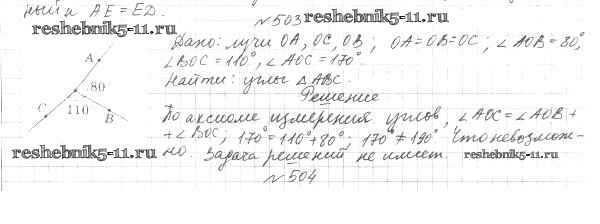 ный и AE = ED.
№503
reshebnik5-11.ru
reshebnik5-11.ru
Дано: лучи OA, OC, OB; OA=OB=OC; ∠AOB=80°,
∠BOC=110°, ∠AOC=170°.
Найти: углы △ABC.
Решение
По аксиоме измерения углов, ∠AOC=∠AOB+
+∠BOC; 170°=110°+80°; 170°≠190°. Что невозмож-
но. Задача решений не имеет.
reshebnik5-11.ru
reshebnik5-11.ru
№504
A
80
C
110
B